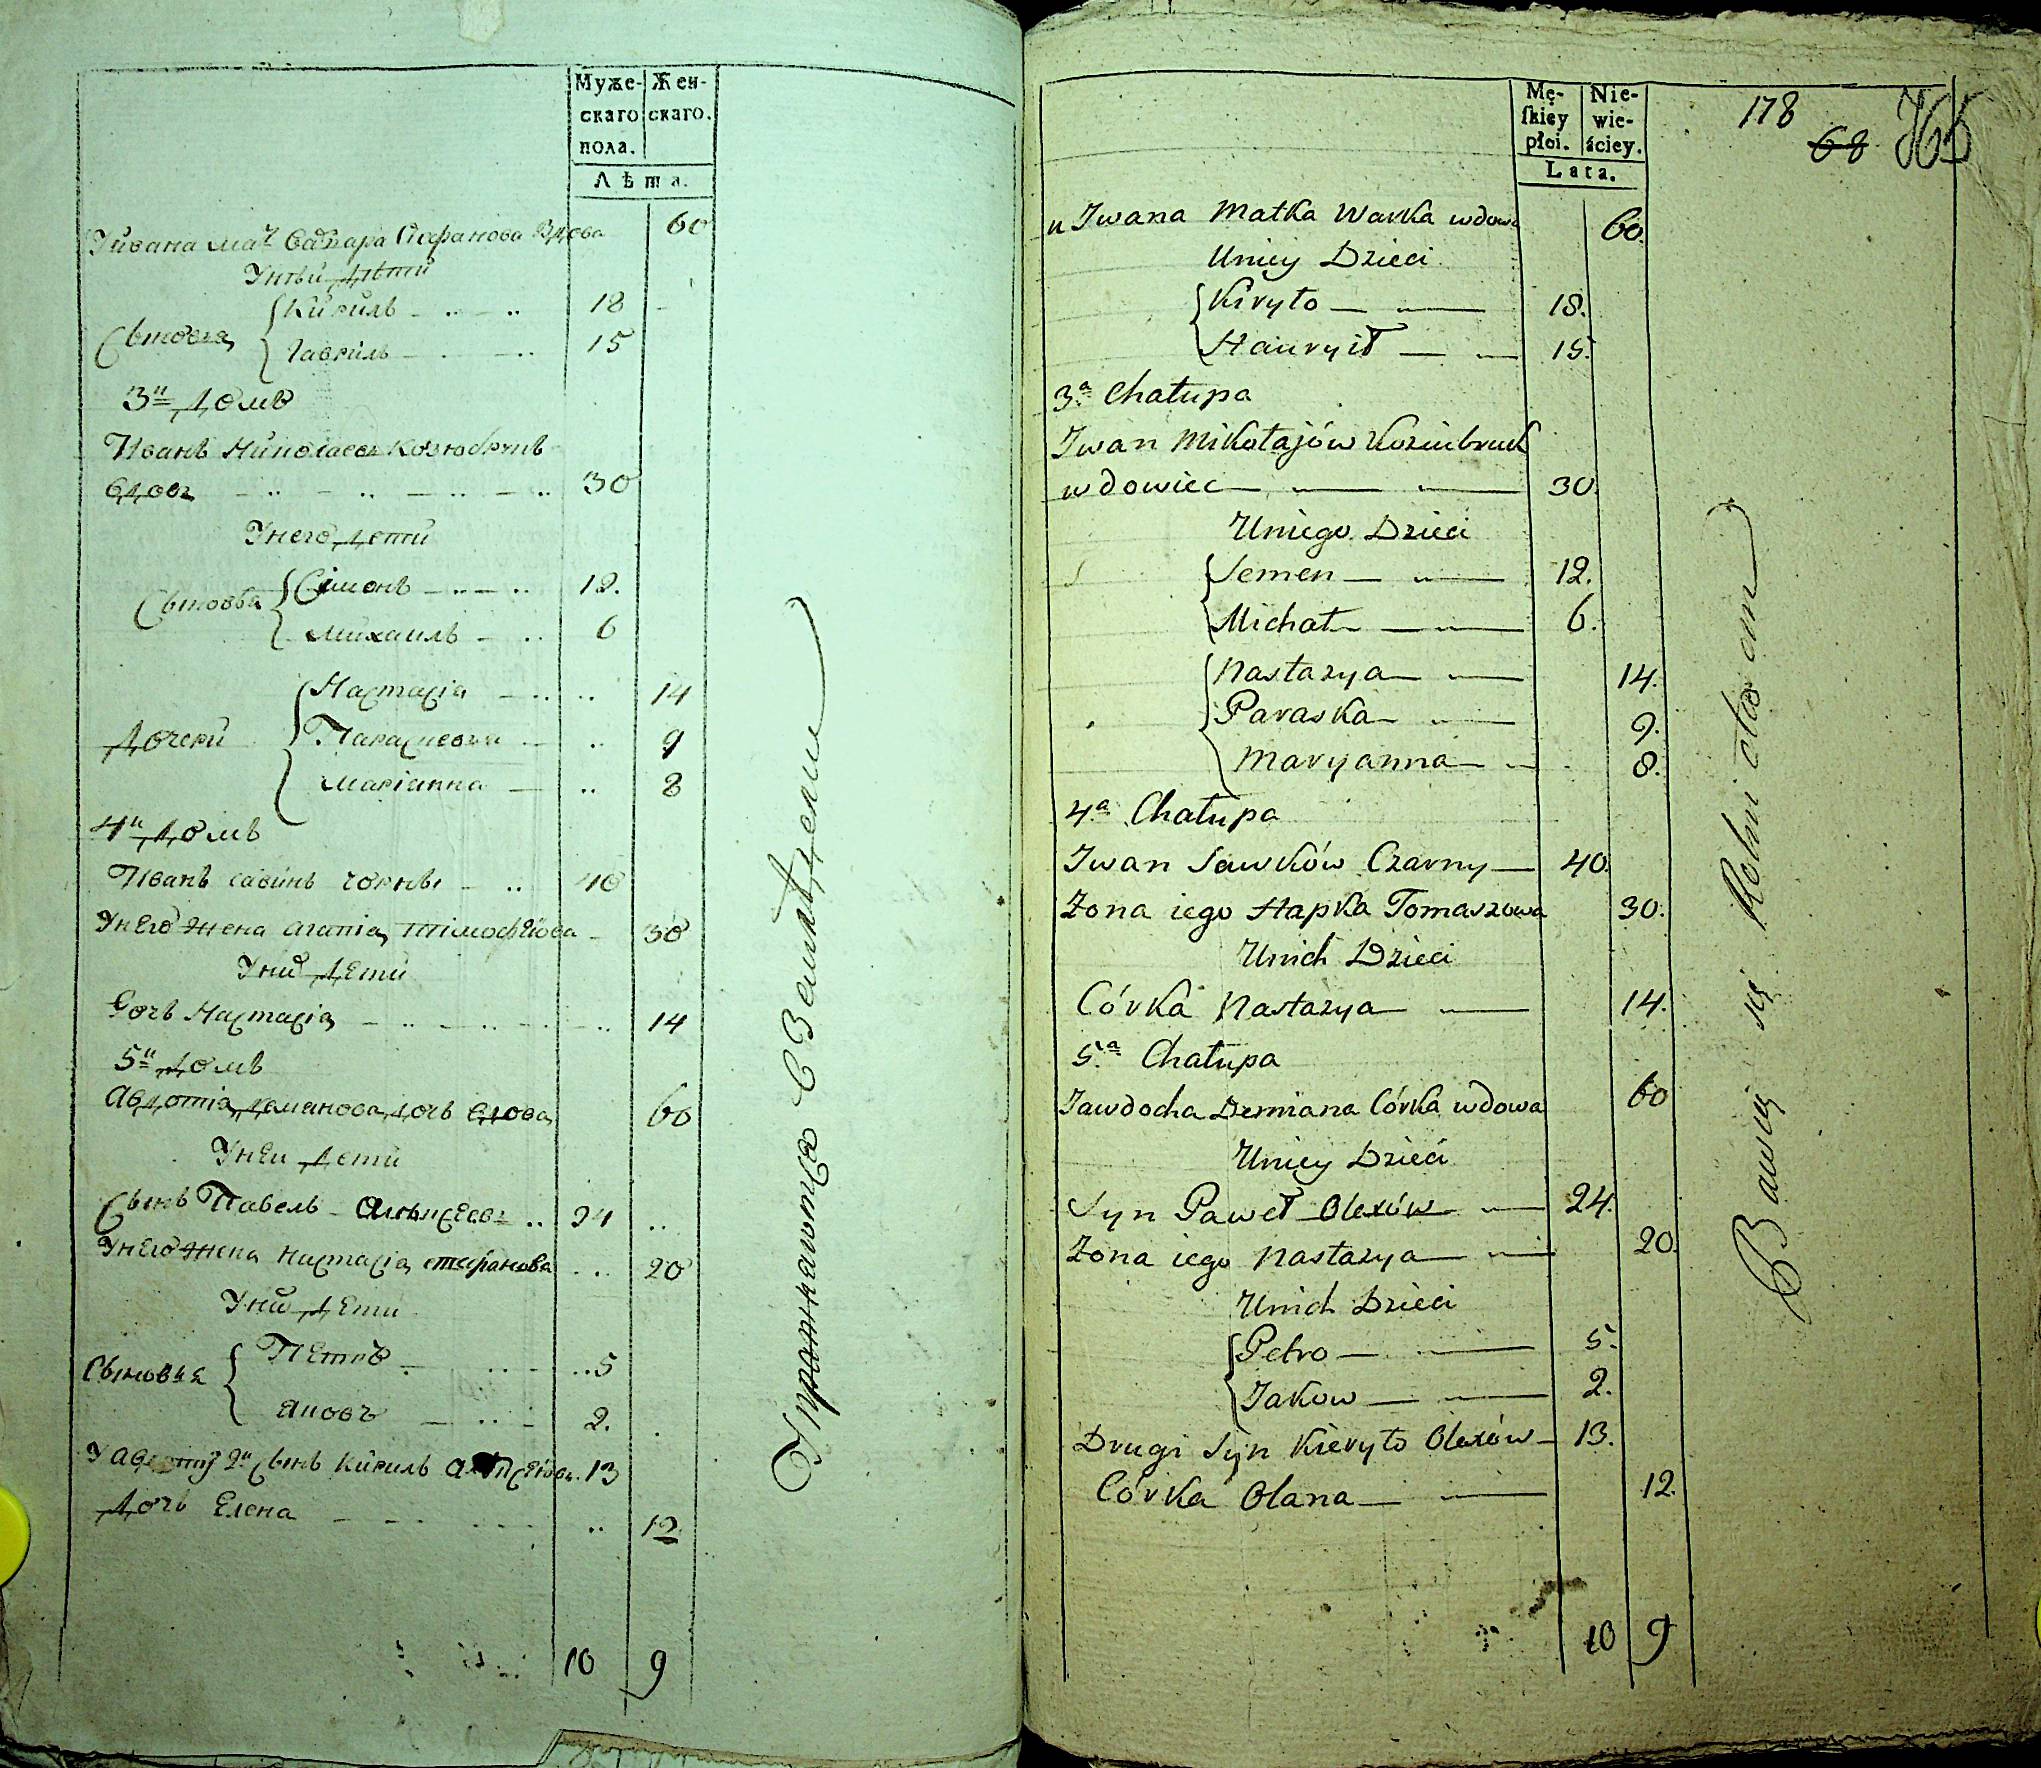 Муже- Жен-
скаго скаго.
пола.
Лѣта.
У Ивана мать Варвара Стефанова вдова 60
У ней дѣти
Сыновья
Кирилъ 18
Гаврилъ 15
3й домъ
Иванъ Николаевъ Козюбрукъ
вдовъ 30
У него дети
Сыновья
Симонъ 12.
Михаилъ 6
Дочери
Настасія 14
Парасцевия 9
Маріанна 8
4й домъ
Иванъ Савинъ Чорны 40
У него жена Агапія Тимофеева 30
У них дети
Дочь Настасія 14
5й домъ
Авдотія Деманова дочь вдова 60
У неи дети
Сынъ Павелъ Алексеевъ 24
У него жена Настасія Стефанова 20
У них дети
Сыновья
Петръ 5
Яковъ 2.
У Авдотии 2й сынъ Кирилъ Алексеевъ. 13
Дочь Елена 12
10 9
Упражняются в Земледелии
Mę- Nie-
skiey wie-
płci. ściey.
Lata.
178 68
u Jwana Matka Warka wdowa 60.
Uniey Dzieci
Kiryło 18.
Hauryił 15.
3a Chałupa
Jwan Mikołajów Koziubruk
wdowiec 30.
Uniego Dzieci
Semen 12.
Michał 6.
Nastazya 14.
Paraska 9.
Maryanna 8.
4a Chałupa
Jwan Sawków Czarny 40.
Żona iego Hapka Tomaszowa 30.
Unich Dzieci
Córka Nastazya 14.
5a Chałupa
Jawdocha Demiana Córka wdowa 60
Uniey Dzieci
Syn Paweł Olexów 24.
Żona iego Nastazya 20.
Unich Dzieci
Petro 5.
Jakow 2.
Drugi Syn Kieryło Olexów 13.
Córka Olana 12.
10 9
Bawią się Rolnictwem